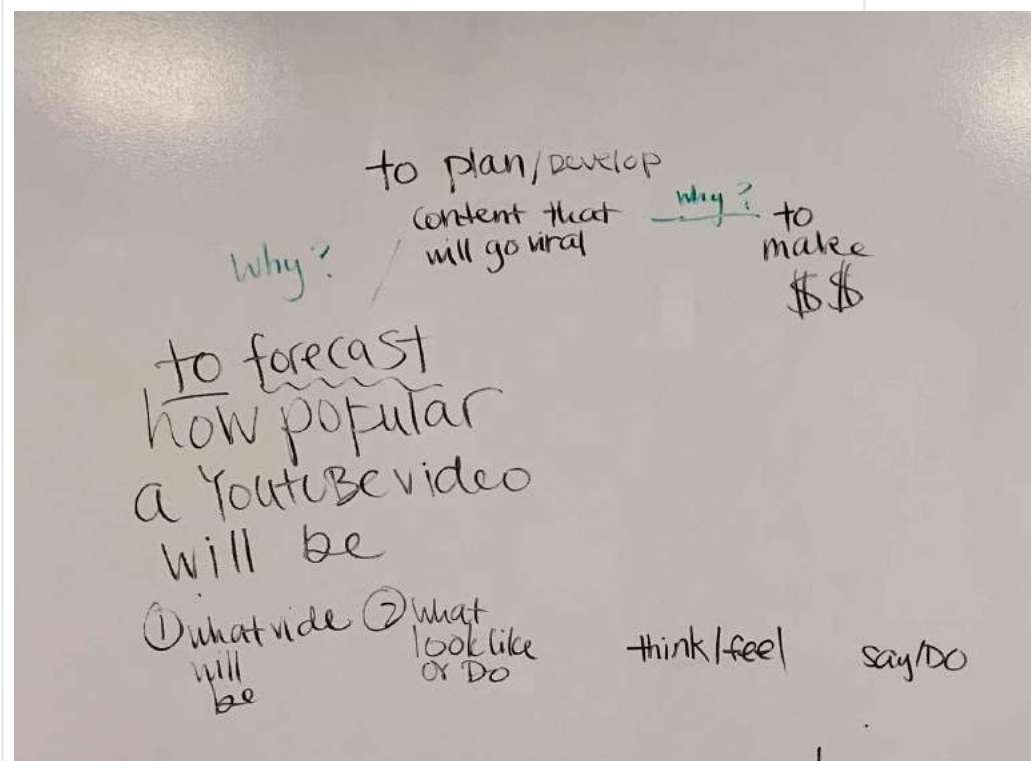 to plan/Develop
content that
will go viral
why?
to
make
$$
Why?
to forecast
how popular
a YoutuBe video
will be
① what vide
will
be
② what
look like
or Do
think/feel
say/DO